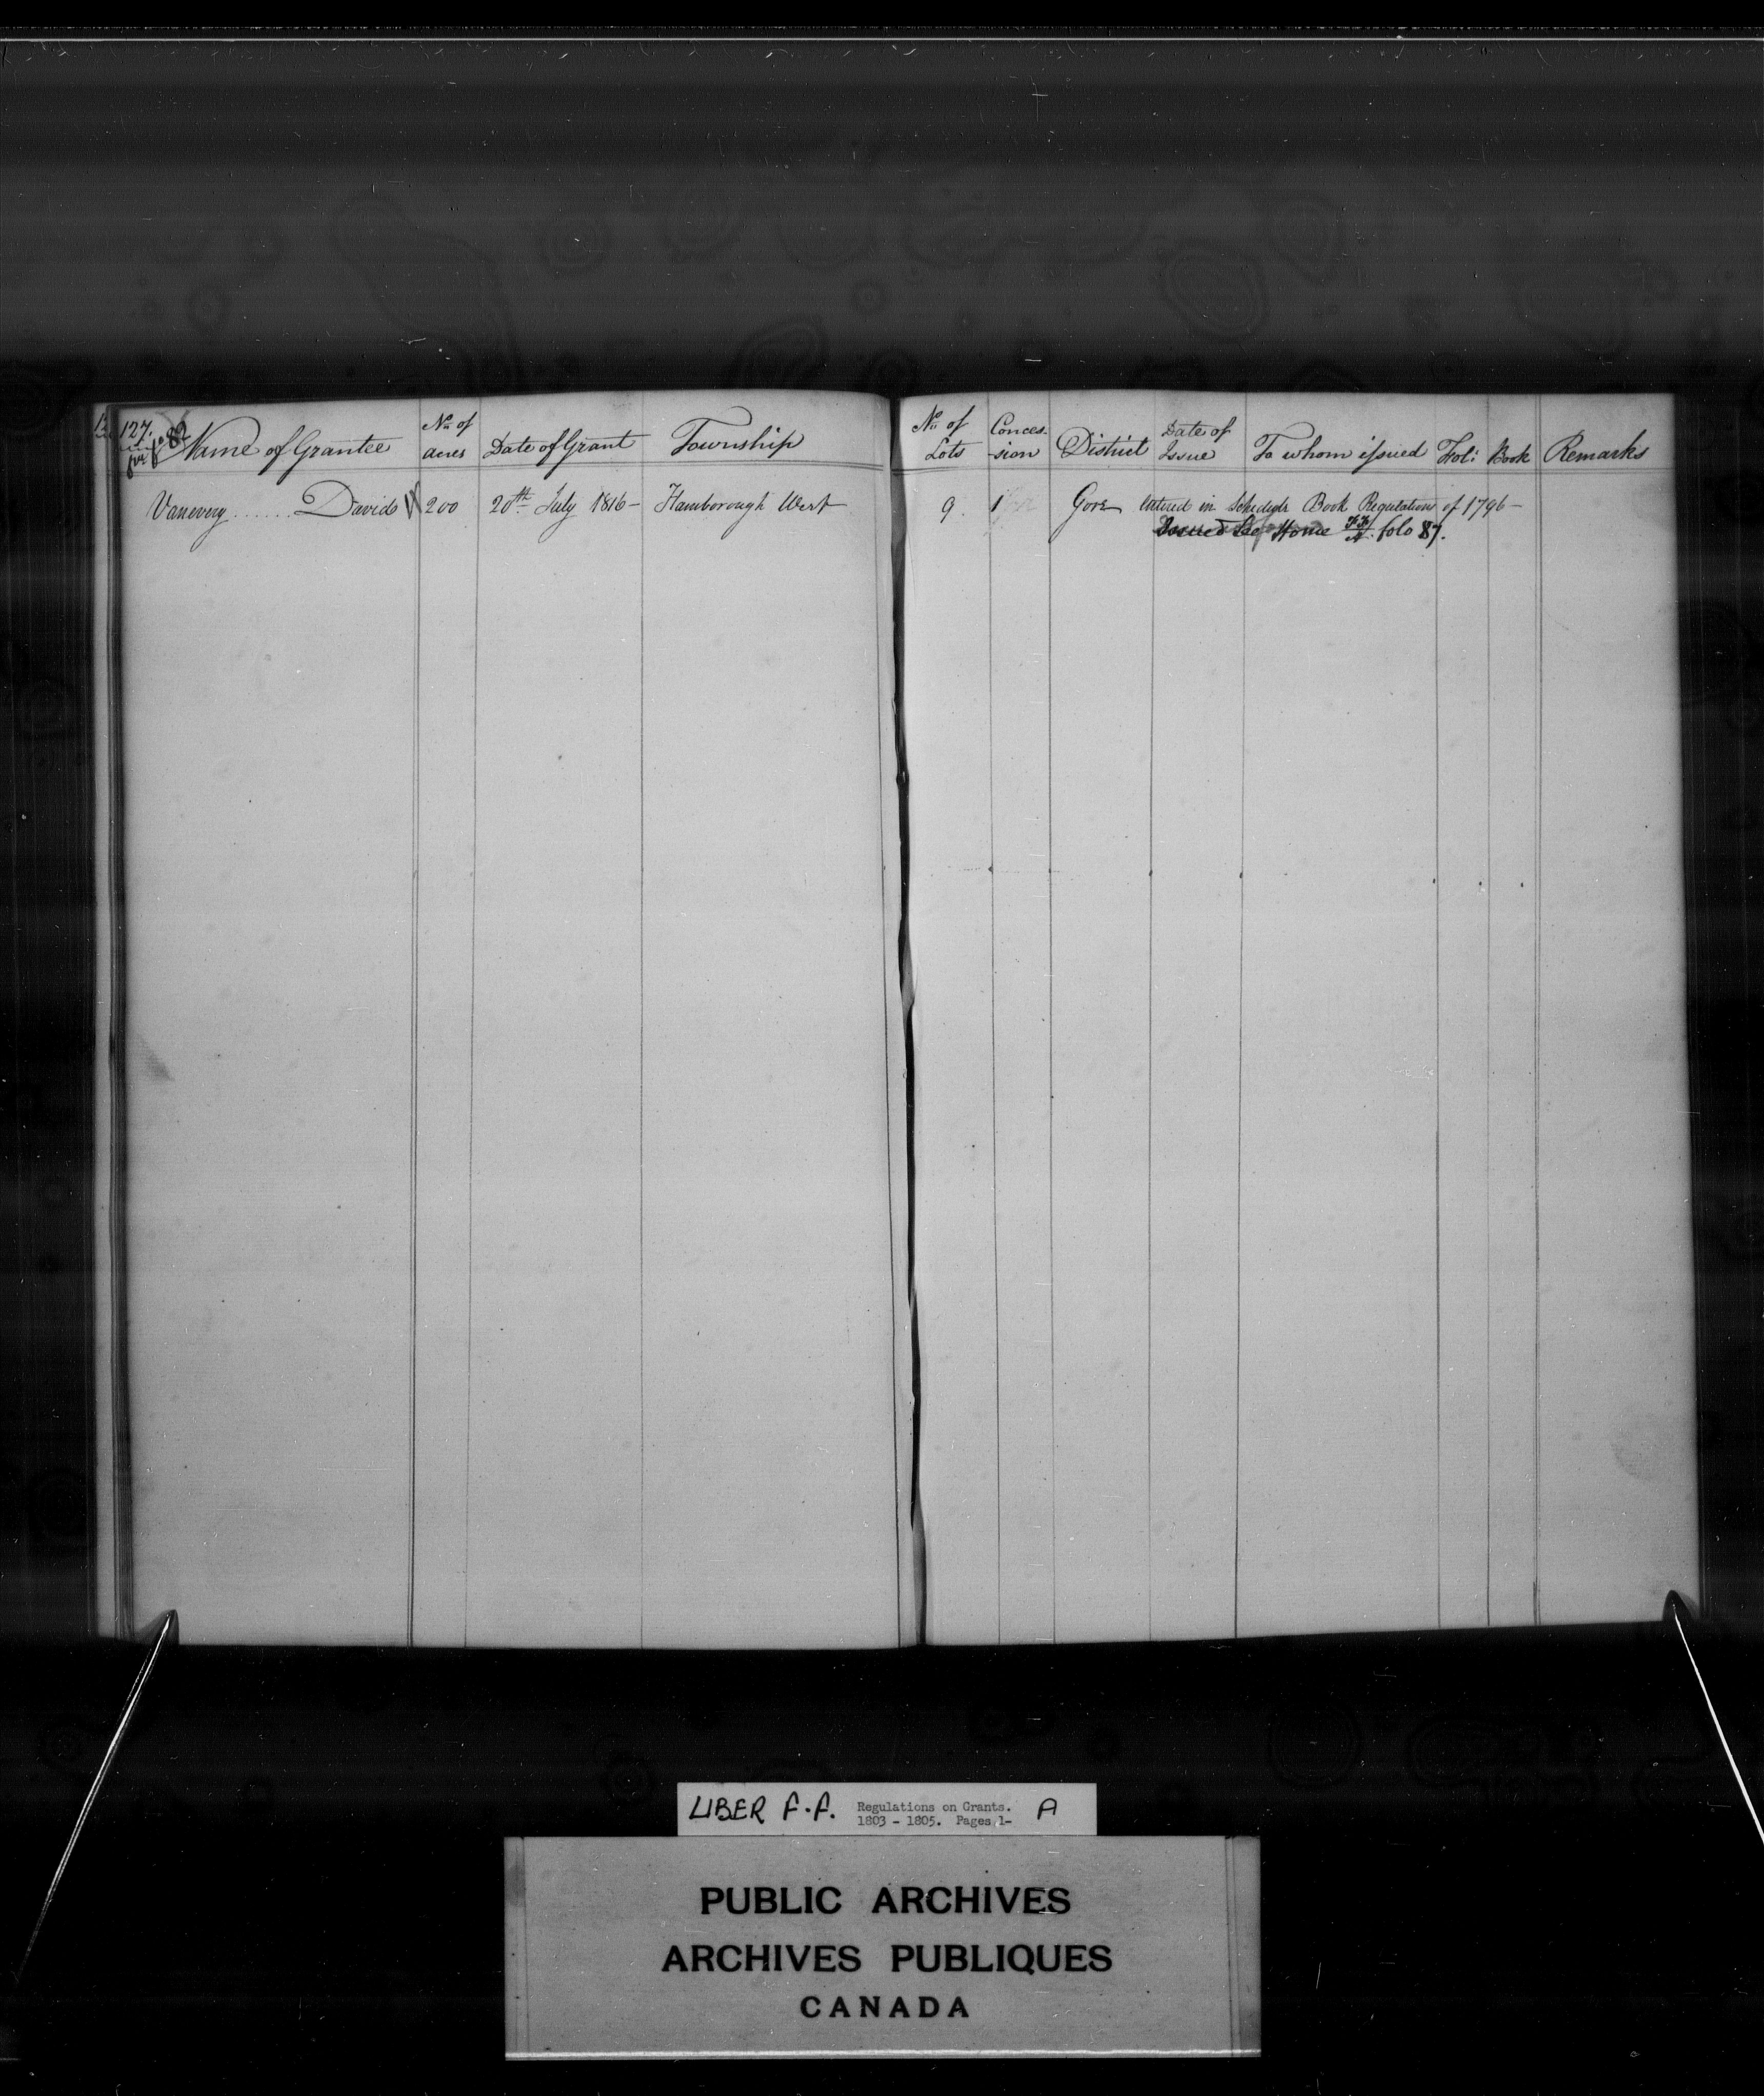 127.
fo 82
Name of Grantee | No. of acres | Date of Grant | Township | No. of Lots | Conces-sion | District | Date of Issue | To whom issued | Fol: | Book | Remarks
Vanevery ...... David | 200 | 20th July 1816 – | Flamborough West | 9. | 1 | Gore | Entered in Schedule Book Regulation of 1796 –
Issued See Home folo 87.
LIBER F.F. Regulations on Grants. A
1803 - 1805. Pages 1-
PUBLIC ARCHIVES
ARCHIVES PUBLIQUES
CANADA